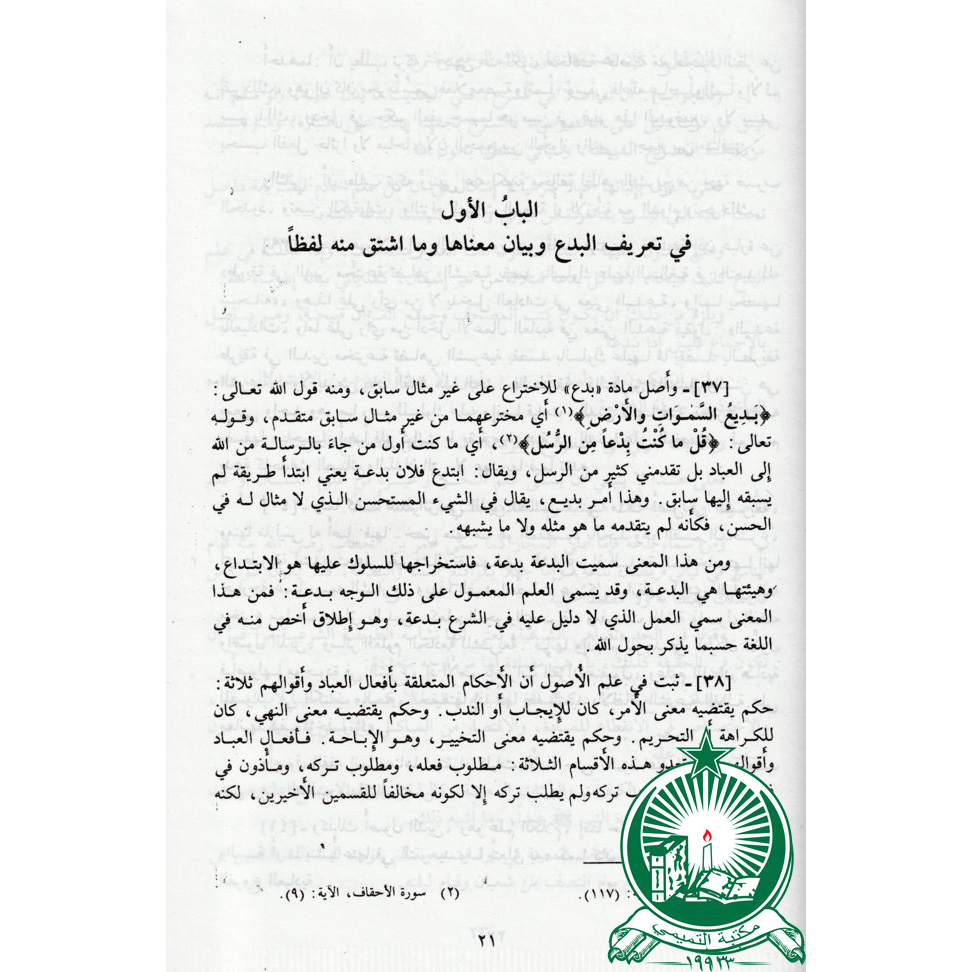 البابُ الأول
في تعريف البدع وبيان معناها وما اشتق منه لفظاً
[٣٧] ـ وأصل مادة «بدع» للاختراع على غير مثال سابق، ومنه قول الله تعالى:
﴿بَدِيعُ السَّمٰوَاتِ والأَرْضِ﴾(١) أي مخترعهما من غير مثال سابق متقدم، وقوله
تعالى: ﴿قُلْ ما كُنْتُ بِدْعاً مِن الرُّسُل﴾(٢)، أي ما كنت أول من جاءَ بالرسالة من الله
إلى العباد بل تقدمني كثير من الرسل، ويقال: ابتدع فلان بدعة يعني ابتدأ طريقة لم
يسبقه إليها سابق. وهذا أمر بديع، يقال في الشيء المستحسن الذي لا مثال له في
الحسن، فكأنه لم يتقدمه ما هو مثله ولا ما يشبهه.
ومن هذا المعنى سميت البدعة بدعة، فاستخراجها للسلوك عليها هو الابتداع،
وهيئتها هي البدعة، وقد يسمى العلم المعمول على ذلك الوجه بدعة: فمن هذا
المعنى سمي العمل الذي لا دليل عليه في الشرع بدعة، وهو إطلاق أخص منه في
اللغة حسبما يذكر بحول الله.
[٣٨] ـ ثبت في علم الأصول أن الأحكام المتعلقة بأفعال العباد وأقوالهم ثلاثة:
حكم يقتضيه معنى الأمر، كان للإيجاب أو الندب. وحكم يقتضيه معنى النهي، كان
للكراهة أو التحريم. وحكم يقتضيه معنى التخيير، وهو الإباحة. فأفعال العباد
هذه الأقسام الثلاثة: مطلوب فعله، ومطلوب تركه، ومأذون في
تركه ولم يطلب تركه إلا لكونه مخالفاً للقسمين الأخيرين، لكنه
(١١٧).
(٢) سورة الأحقاف، الآية: (٩).
٢١
مكتبة التميمي
١٩٩٣٣